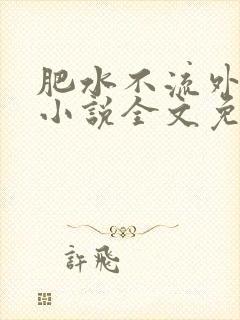 肥水不流外
小说全文免
許飛